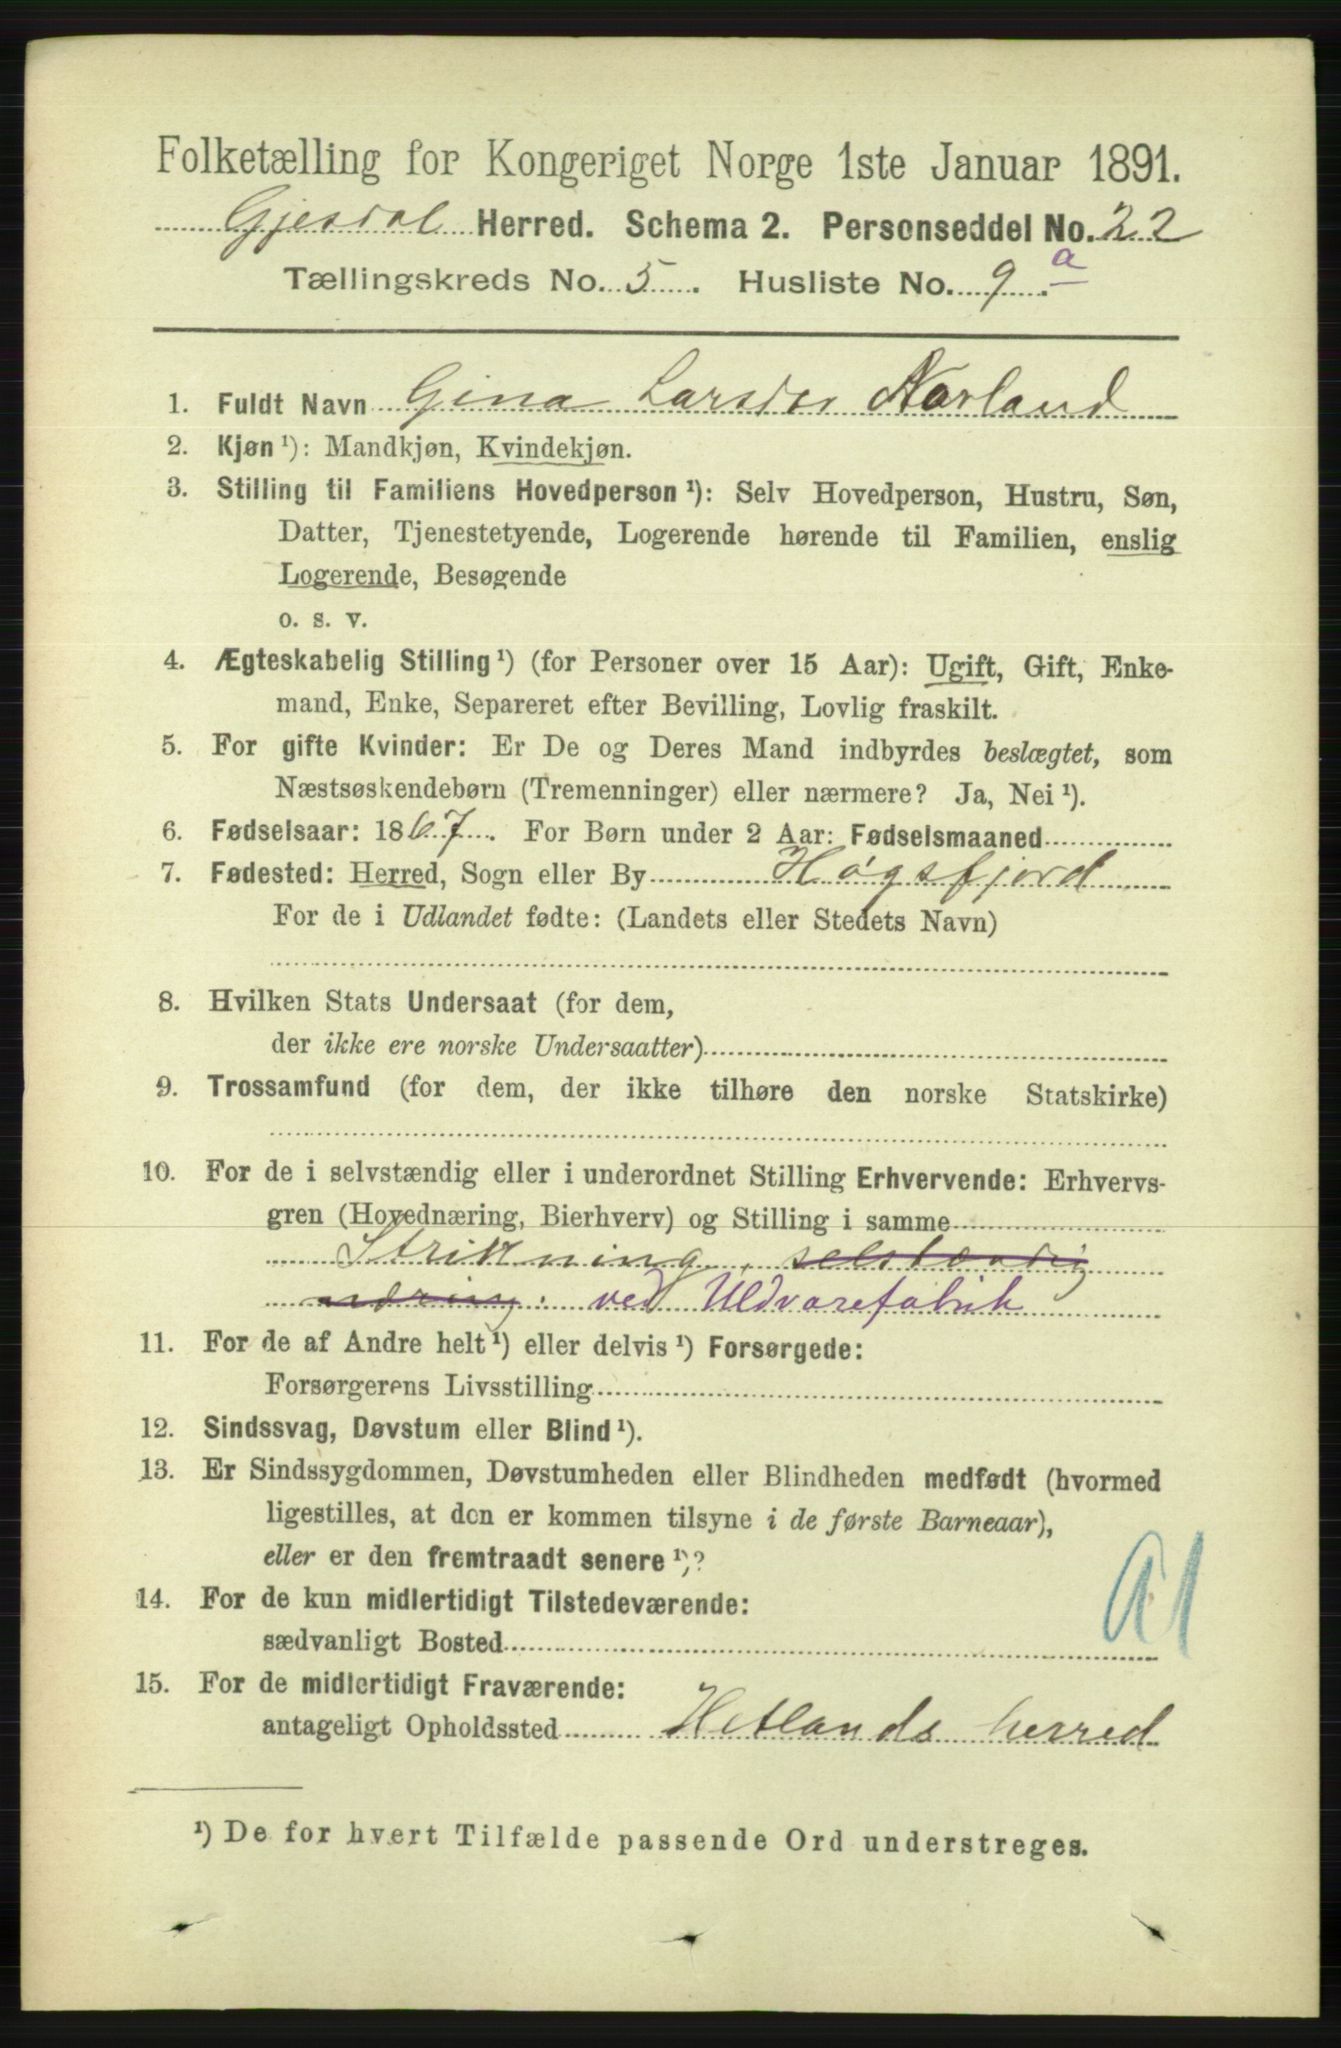 Folketælling for Kongeriget Norge 1ste Januar 1891.
Gjesdal Herred. Schema 2. Personseddel No. 22
Tællingskreds No. 5. Husliste No. 9 a.
1. Fuldt Navn Gina Larsdtr Norland
2. Kjøn ¹): Mandkjøn, Kvindekjøn.
3. Stilling til Familiens Hovedperson ¹): Selv Hovedperson, Hustru, Søn,
Datter, Tjenestetyende, Logerende hørende til Familien, enslig
Logerende, Besøgende
o. s. v.
4. Ægteskabelig Stilling ¹) (for Personer over 15 Aar): Ugift, Gift, Enke-
mand, Enke, Separeret efter Bevilling, Lovlig fraskilt.
5. For gifte Kvinder: Er De og Deres Mand indbyrdes beslægtet, som
Næstsøskendebørn (Tremenninger) eller nærmere? Ja, Nei ¹).
6. Fødselsaar: 1867. For Børn under 2 Aar: Fødselsmaaned
7. Fødested: Herred, Sogn eller By Høgsfjord
For de i Udlandet fødte: (Landets eller Stedets Navn)
8. Hvilken Stats Undersaat (for dem,
der ikke ere norske Undersaatter)
9. Trossamfund (for dem, der ikke tilhøre den norske Statskirke)
10. For de i selvstændig eller i underordnet Stilling Erhvervende: Erhvervs-
gren (Hovednæring, Bierhverv) og Stilling i samme
Strikning, selstændig
næring. ved Uldvarefabrik
11. For de af Andre helt ¹) eller delvis ¹) Forsørgede:
Forsørgerens Livsstilling
12. Sindssvag, Døvstum eller Blind ¹).
13. Er Sindssygdommen, Døvstumheden eller Blindheden medfødt (hvormed
ligestilles, at den er kommen tilsyne i de første Barneaar),
eller er den fremtraadt senere ¹)?
14. For de kun midlertidigt Tilstedeværende:
sædvanligt Bosted
15. For de midlertidigt Fraværende:
antageligt Opholdssted Hetlands herred
¹) De for hvert Tilfælde passende Ord understreges.